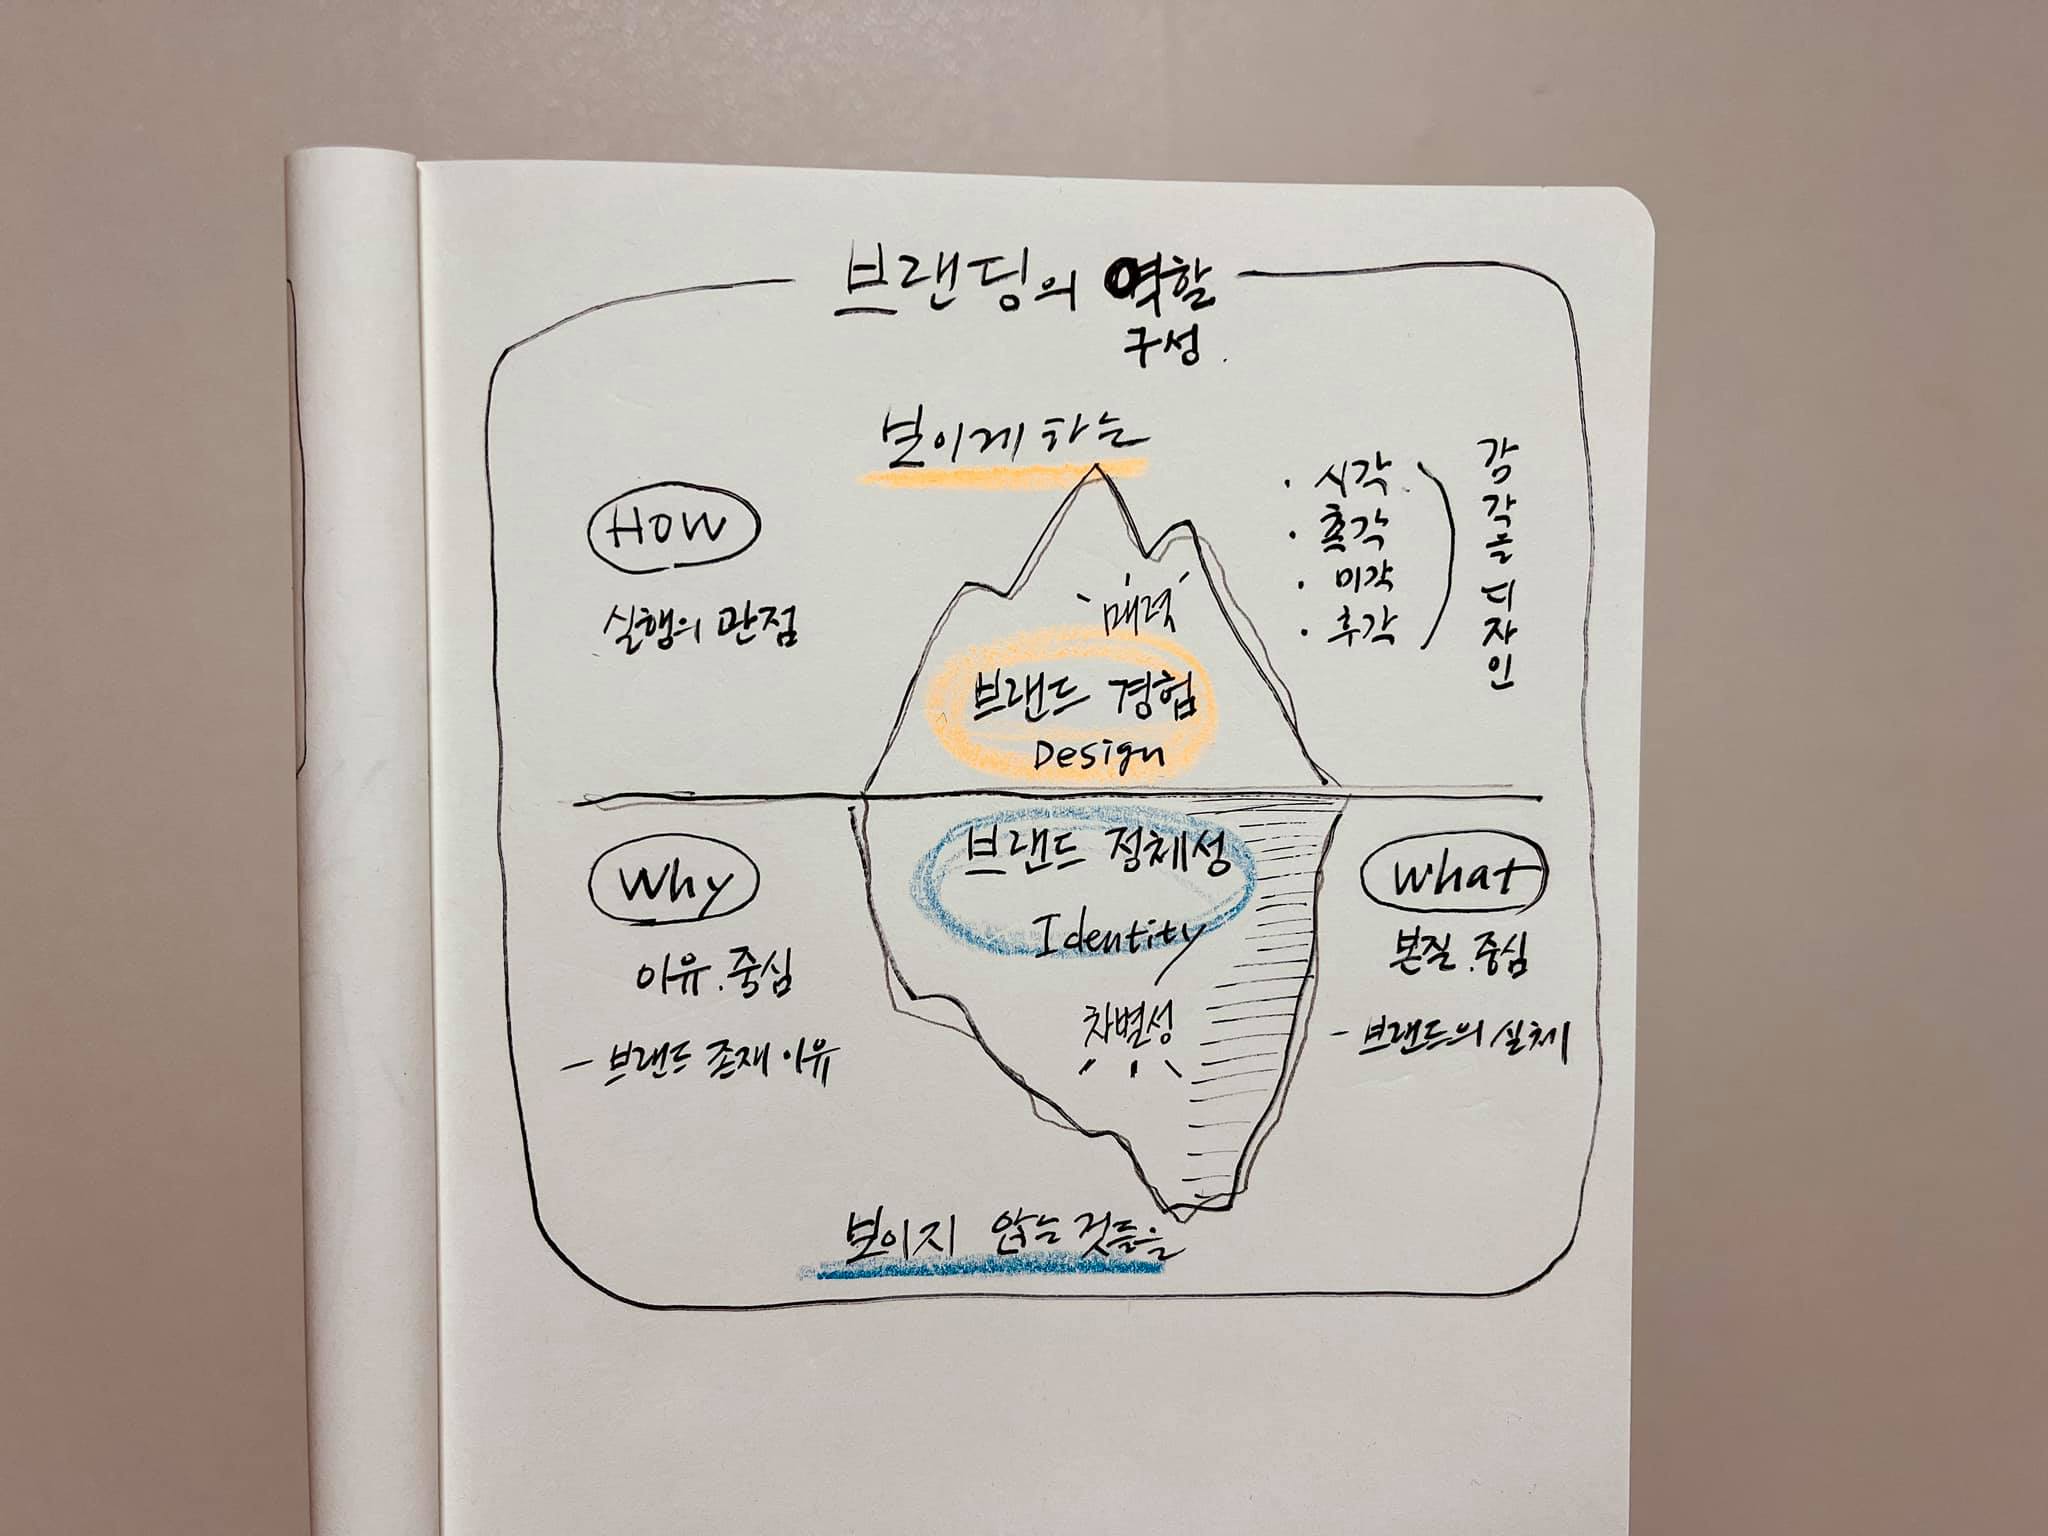 브랜딩의 역할
구성
보이게 하는
HOW
실행의 관점
매력
브랜드 경험
Design
· 시각
· 촉각
· 미각
· 후각
감각을 디자인
Why
이유.중심
- 브랜드 존재 이유
브랜드 정체성
Identity
차별성
What
본질.중심
- 브랜드의 실체
보이지 않는 것들을